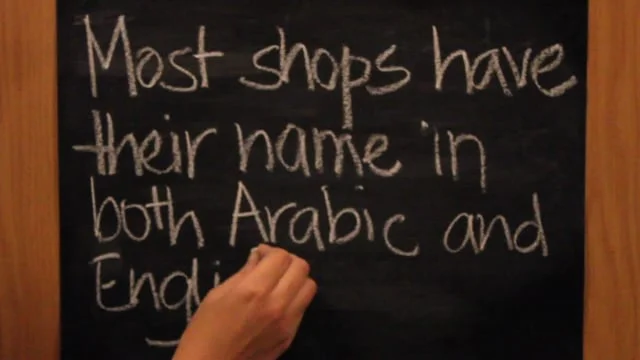 Most shops have
their name in
both Arabic and
Engli